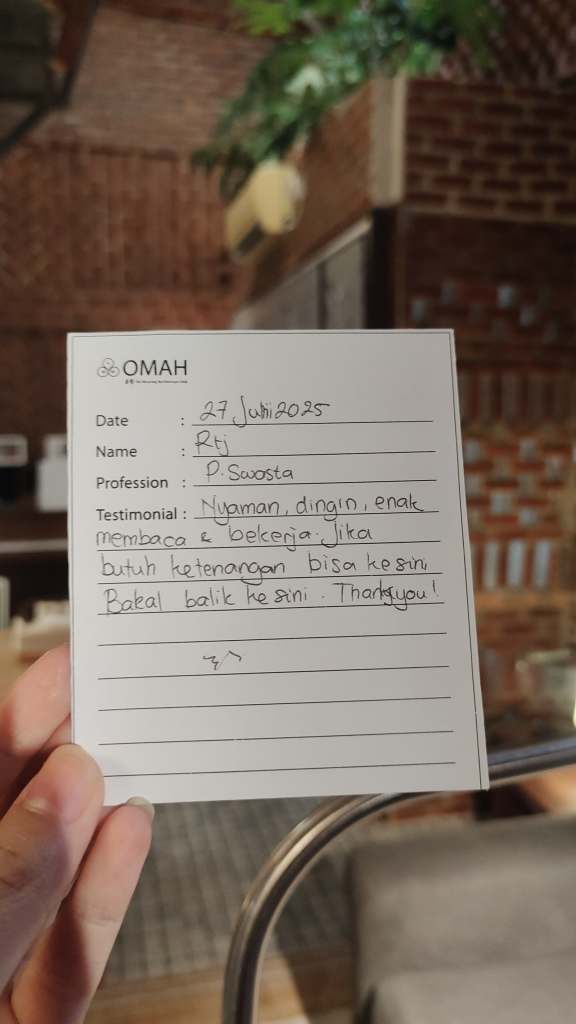 OMAH
Date : 27 Juni 2025
Name : Rtj
Profession : P. Swasta
Testimonial : Nyaman, dingin, enak
membaca & bekerja. Jika
butuh ketenangan bisa kesini,
Bakal balik ke sini. Thankyou!